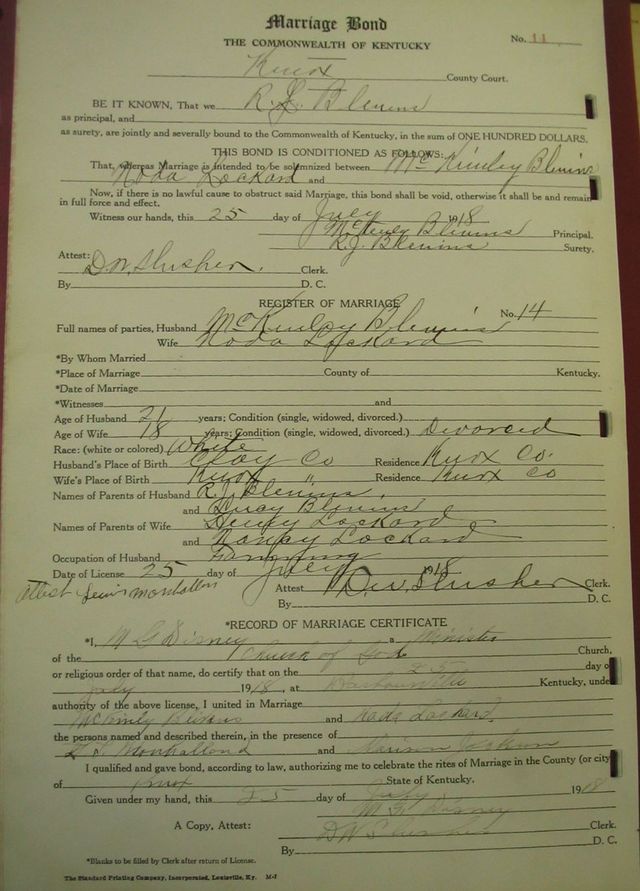 Marriage Bond
THE COMMONWEALTH OF KENTUCKY
No. 11
Knox County Court.
BE IT KNOWN, That we R. J. Blevins
as principal, and
as surety, are jointly and severally bound to the Commonwealth of Kentucky, in the sum of ONE HUNDRED DOLLARS.
THIS BOND IS CONDITIONED AS FOLLOWS:
That, whereas Marriage is intended to be solemnized between McKinley Blevins
Noda Lockard and
Now, if there is no lawful cause to obstruct said Marriage, this bond shall be void, otherwise it shall be and remain
in full force and effect.
Witness our hands, this 25 day of July 1918
McKinley Blevins Principal.
R. J. Blevins Surety.
Attest:
D. W. Slusher. Clerk.
By D. C.
REGISTER OF MARRIAGE No. 14
Full names of parties, Husband McKinley Blevins
Wife Noda Lockard
*By Whom Married
*Place of Marriage County of Kentucky.
*Date of Marriage
*Witnesses and
Age of Husband 21 years; Condition (single, widowed, divorced.)
Age of Wife 18 years; Condition (single, widowed, divorced.) Divorced
Race: (white or colored) White
Husband's Place of Birth Clay Co Residence Knox Co.
Wife's Place of Birth Knox " Residence Knox Co
Names of Parents of Husband R. J. Blevins,
and Lucy Blevins
Names of Parents of Wife Dewey Lockard
and Nancy Lockard
Occupation of Husband Farming
Date of License 25 day of July 1918
Attest Lewis
Attest D. W. Slusher Clerk.
By D. C.
*RECORD OF MARRIAGE CERTIFICATE
*I, M G Disney a Minister
of the Church of God Church,
or religious order of that name, do certify that on the 25 day of
July 1918, at Barbourville Kentucky, under
authority of the above license, I united in Marriage
and Noda Lockard
the persons named and described therein, in the presence of
and
I qualified and gave bond, according to law, authorizing me to celebrate the rites of Marriage in the County (or city
of Knox State of Kentucky.
Given under my hand, this 25 day of July 1918
M. G. Disney
A Copy, Attest: D W Slusher Clerk.
By D. C.
*Blanks to be filled by Clerk after return of License.
The Standard Printing Company, Incorporated, Louisville, Ky. M-J